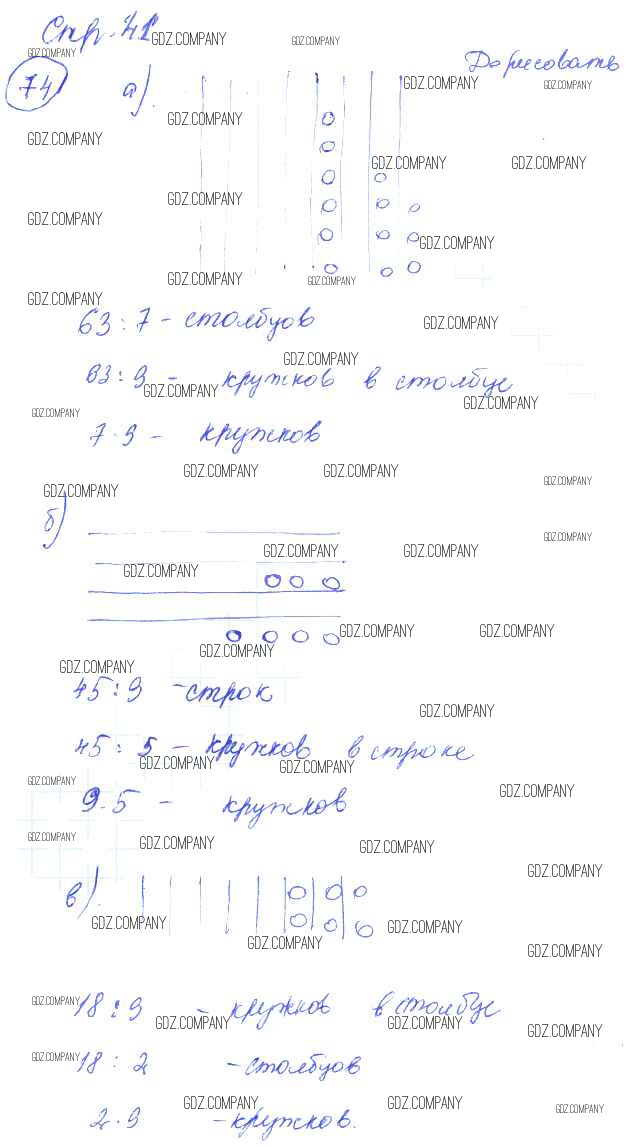 Стр. 41
Дорисовать
74 а)
63 : 7 - столбцов
63 : 9 - кружков в столбце
7 · 9 - кружков
б)
45 : 9 - строк
45 : 5 - кружков в строке
9 · 5 - кружков
в)
18 : 9 - кружков в столбце
18 : 2 - столбцов
2 · 9 - кружков.
GDZ.COMPANY